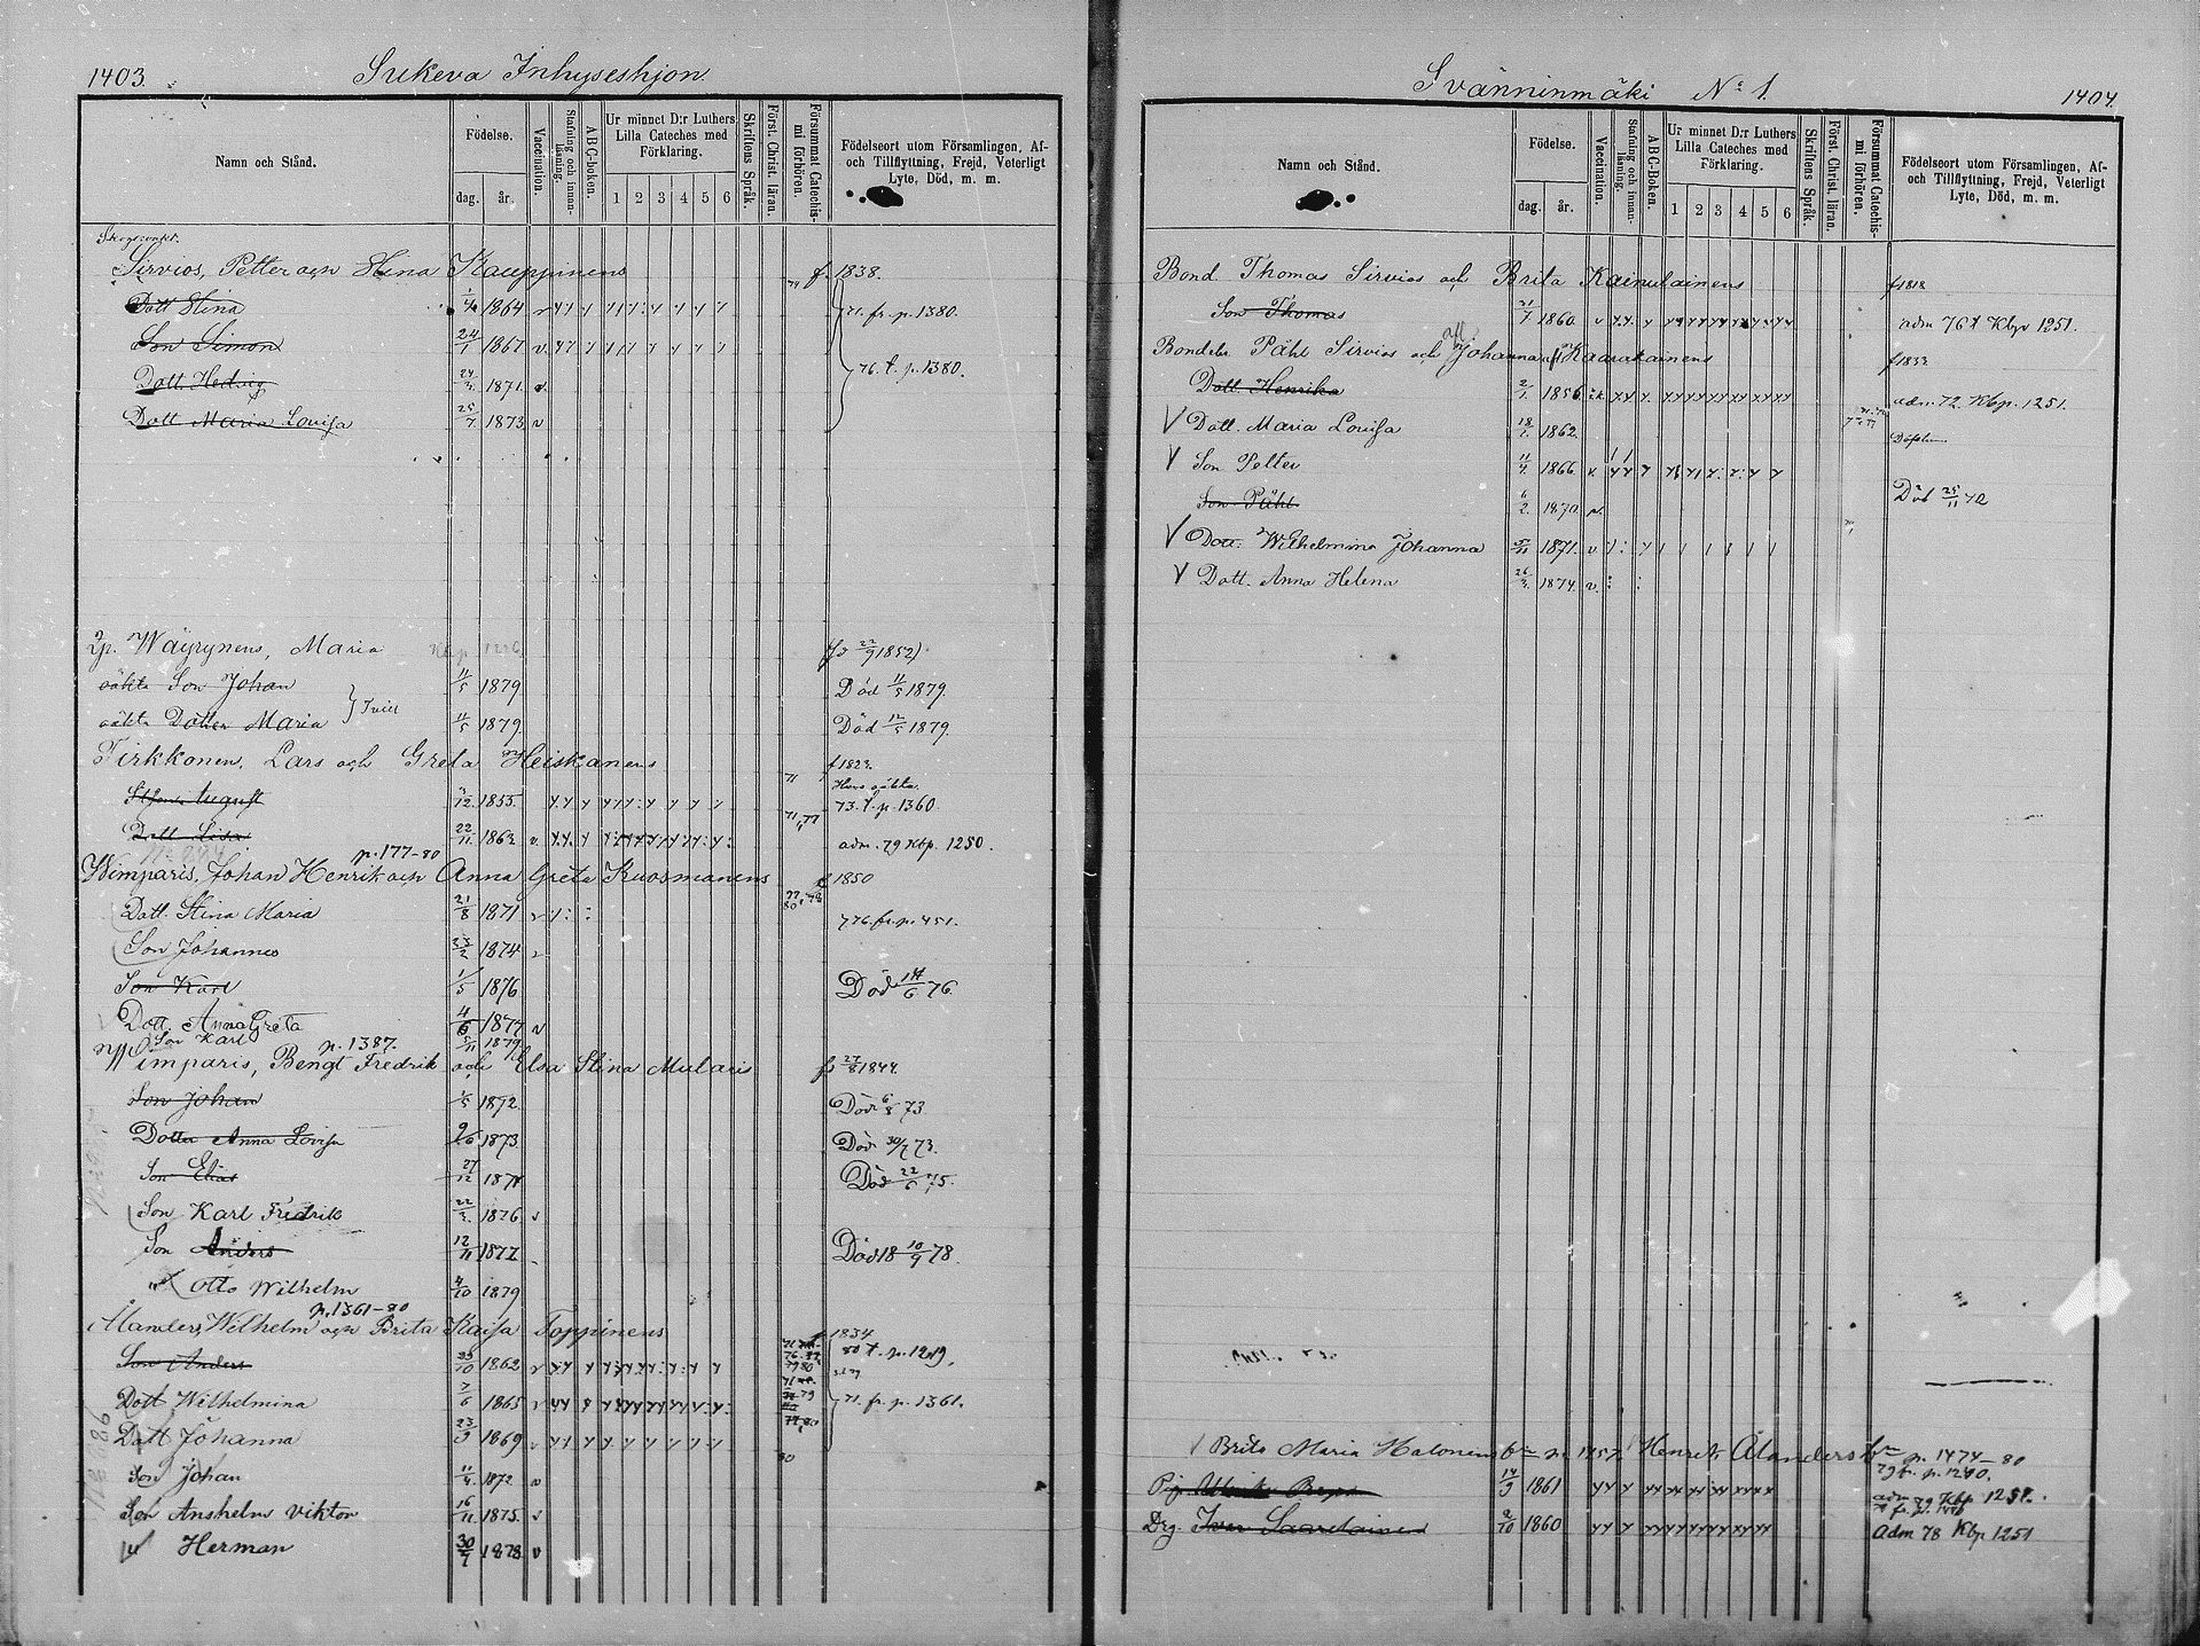 1403.
Sukeva Inhyseshjon.
Namn och Stånd.
Födelse.
dag. år.
Vaccination.
Stafning och innanläsning.
ABC-boken.
Ur minnet D:r Luthers Lilla Cateches med Förklaring.
1 2 3 4 5 6
Skriftens Språk.
Först. Christ. läran.
Försummat Catechismi förhören.
Födelseort utom Församlingen, Af- och Tillflyttning, Frejd, Veterligt Lyte, Död, m. m.
Sirvios, Petter och Stina Kauppinens f 1838.
Dott Stina 1864 71. fr. p. 1380.
Son Simon 24/1 1867 v.
Dott. Hedvig 24/3 1871. 76. t. p. 1380.
Dott Maria Lovisa 25/7 1873 v
Wäyrynens, Maria 22/9 1852)
oäkta Son Johan 11/5 1879 Död 11/5 1879.
oäkta Dotter Maria 11/5 1879. Död 12/5 1879.
Tirkkonen, Lars och Greta Heiskanens f 1823.
August /12 1855. 73. t. p. 1360.
Dott Lisa 22/11 1863 v. adm. 79 Kbp. 1250.
p. 177-80
Wimparis, Johan Henrik och Anna Greta Kuosmanens f 1850
Dott. Stina Maria 21/8 1871 v 76. fr. p. 451.
Son Johannes 23/2 1874 v
Son Karl 1/5 1876 Död 14/6 76.
Dott. Anna Greta 4/6 1877 v
Son Karl 5/11 1879
p. 1387.
Wimparis, Bengt Fredrik och Elsa Stina Mularis f 27/8 1844.
Son Johan 1/5 1872. Död 6/8 73
Dotter Anna Lovisa 9/6 1873. Död 30/7 73.
Son Elias 27/12 1874 Död 22/6 75.
Son Karl Fredrik 22/3 1876 v
Son Anders 12/11 1877 Död 18 10/9 78.
" Otto Wilhelm 4/10 1879
p. 1361-80
Ålanders, Wilhelm och Brita Kaisa Toppinens f 1834
Son Anders /10 1862 v 80 t. p. 1219.
Dott Wilhelmina 7/6 1865 v 71. fr. p. 1361.
Dott Johanna 23/9 1869
Son Johan 11/4 1872 v
Son Anshelm Viktor 16/11 1875. v
" Herman 30/7 1878 v
Svänninmäki No 1.
1404.
Namn och Stånd.
Födelse.
dag. år.
Vaccination.
Stafning och innanläsning.
ABC-Boken.
Ur minnet D:r Luthers Lilla Cateches med Förklaring.
1 2 3 4 5 6
Skriftens Språk.
Först. Christ. läran.
Försummat Catechismi förhören.
Födelseort utom Församlingen, Af- och Tillflyttning, Frejd, Veterligt Lyte, Död, m. m.
Bond. Thomas Sirvios och Brita Kainulainens f 1818
Son Thomas 21/7 1860. v adm 76 t Kbp 1251.
Bondebr. Påhl Sirvios och Johanna Kaarakainens f 1833
Dott. Henrika 2/1 1856. adm. 72. Kbp. 1251.
Dott. Maria Lovisa 18/2 1862. Döfstum
Son Petter 11/4 1866
Son Påhl 6/2 1870. v. Död 25/11 72
Dott. Wilhelmina Johanna /11 1871. v
Dott. Anna Helena 26/3 1874. v.
Brita Maria Halonens bm p. 1457. Henrik Ålanders bm p. 1474-80
79 fr. p. 1240.
Pig. 14/9 1861 adm 79 Kbp 1251.
Drg. Iver Saarelainen 2/10 1860 adm 78 Kbp 1251